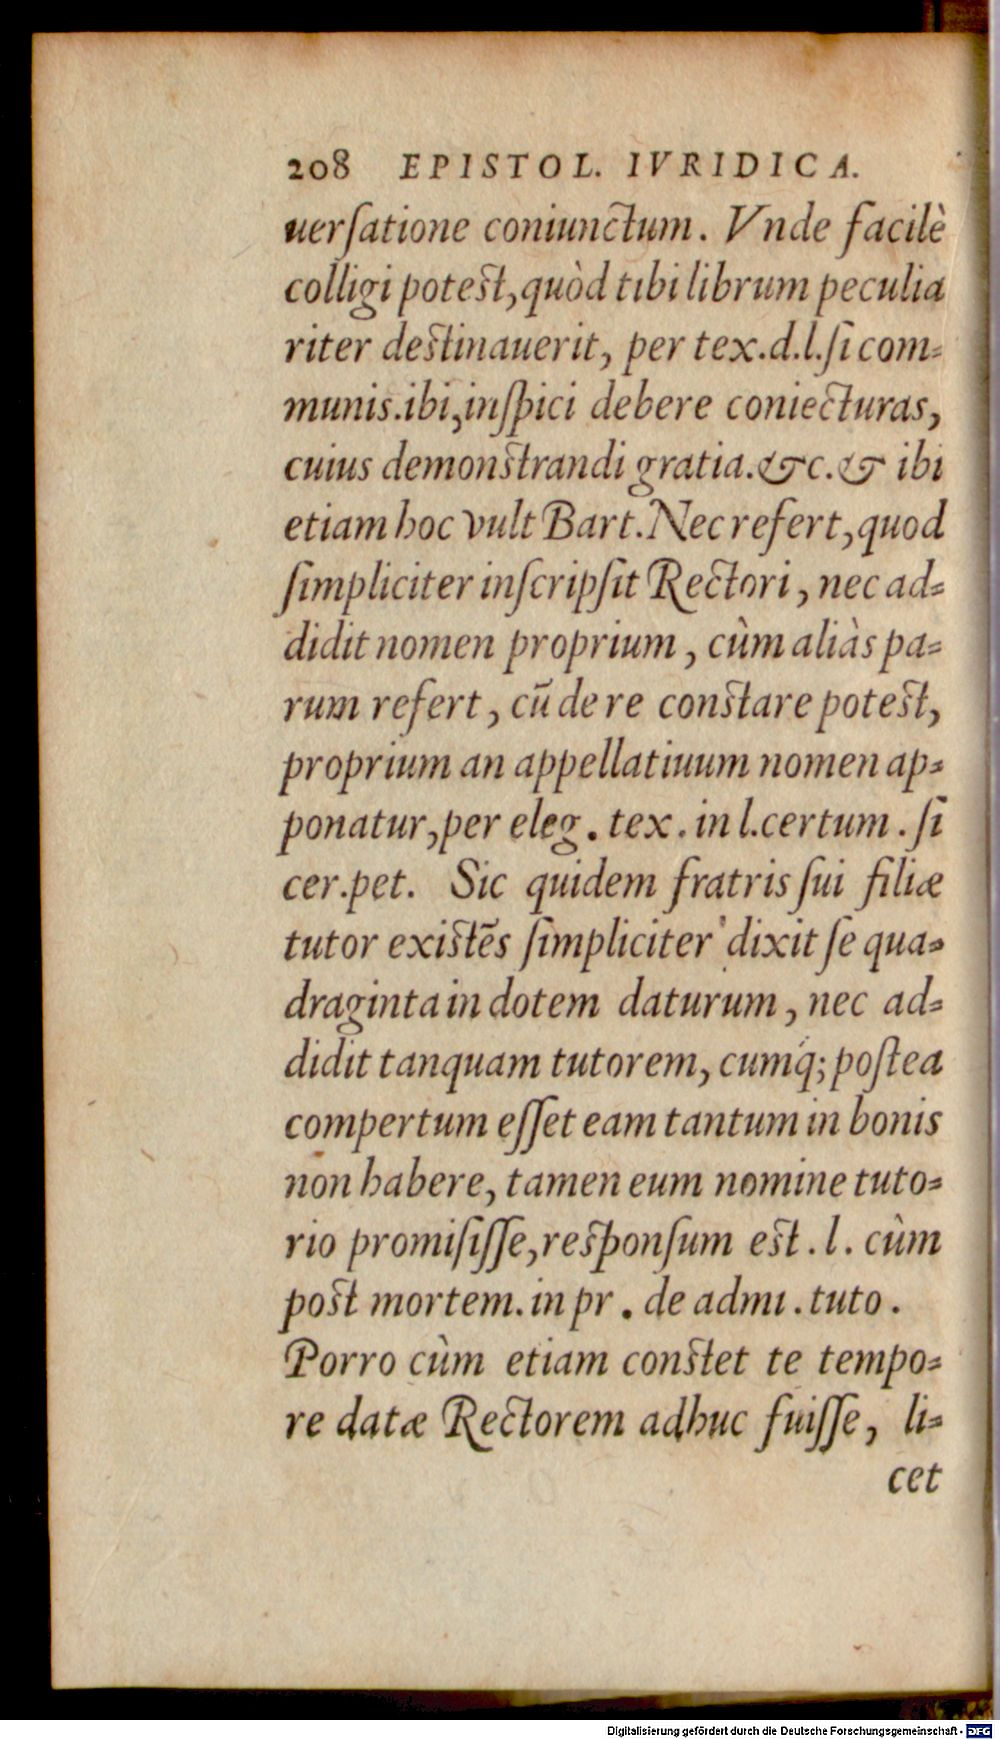 208 EPISTOL. IVRIDICA.
uerſatione coniunctum. Vnde facilè
colligi poteſt,quòd tibi librum peculia
riter deſtinauerit, per tex.d.l.ſi com-
munis.ibi,inſpici debere coniecturas,
cuius demonſtrandi gratia.&c.& ibi
etiam hoc vult Bart.Nec refert,quod
ſimpliciter inſcripſit Rectori, nec ad-
didit nomen proprium, cùm aliàs pa-
rum refert, cū de re conſtare poteſt,
proprium an appellatiuum nomen ap-
ponatur,per eleg. tex. in l.certum. ſi
cer.pet. Sic quidem fratris ſui filiæ
tutor exiſtẽs ſimpliciter dixit ſe qua-
draginta in dotem daturum, nec ad-
didit tanquam tutorem, cumq́; poſtea
compertum eſſet eam tantum in bonis
non habere, tamen eum nomine tuto-
rio promiſiſſe,reſponſum eſt. l. cùm
poſt mortem.in pr. de admi. tuto.
Porro cùm etiam conſtet te tempo-
re datæ Rectorem adhuc fuiſſe, li-
cet
Digitalisierung gefördert durch die Deutsche Forschungsgemeinschaft - DFG